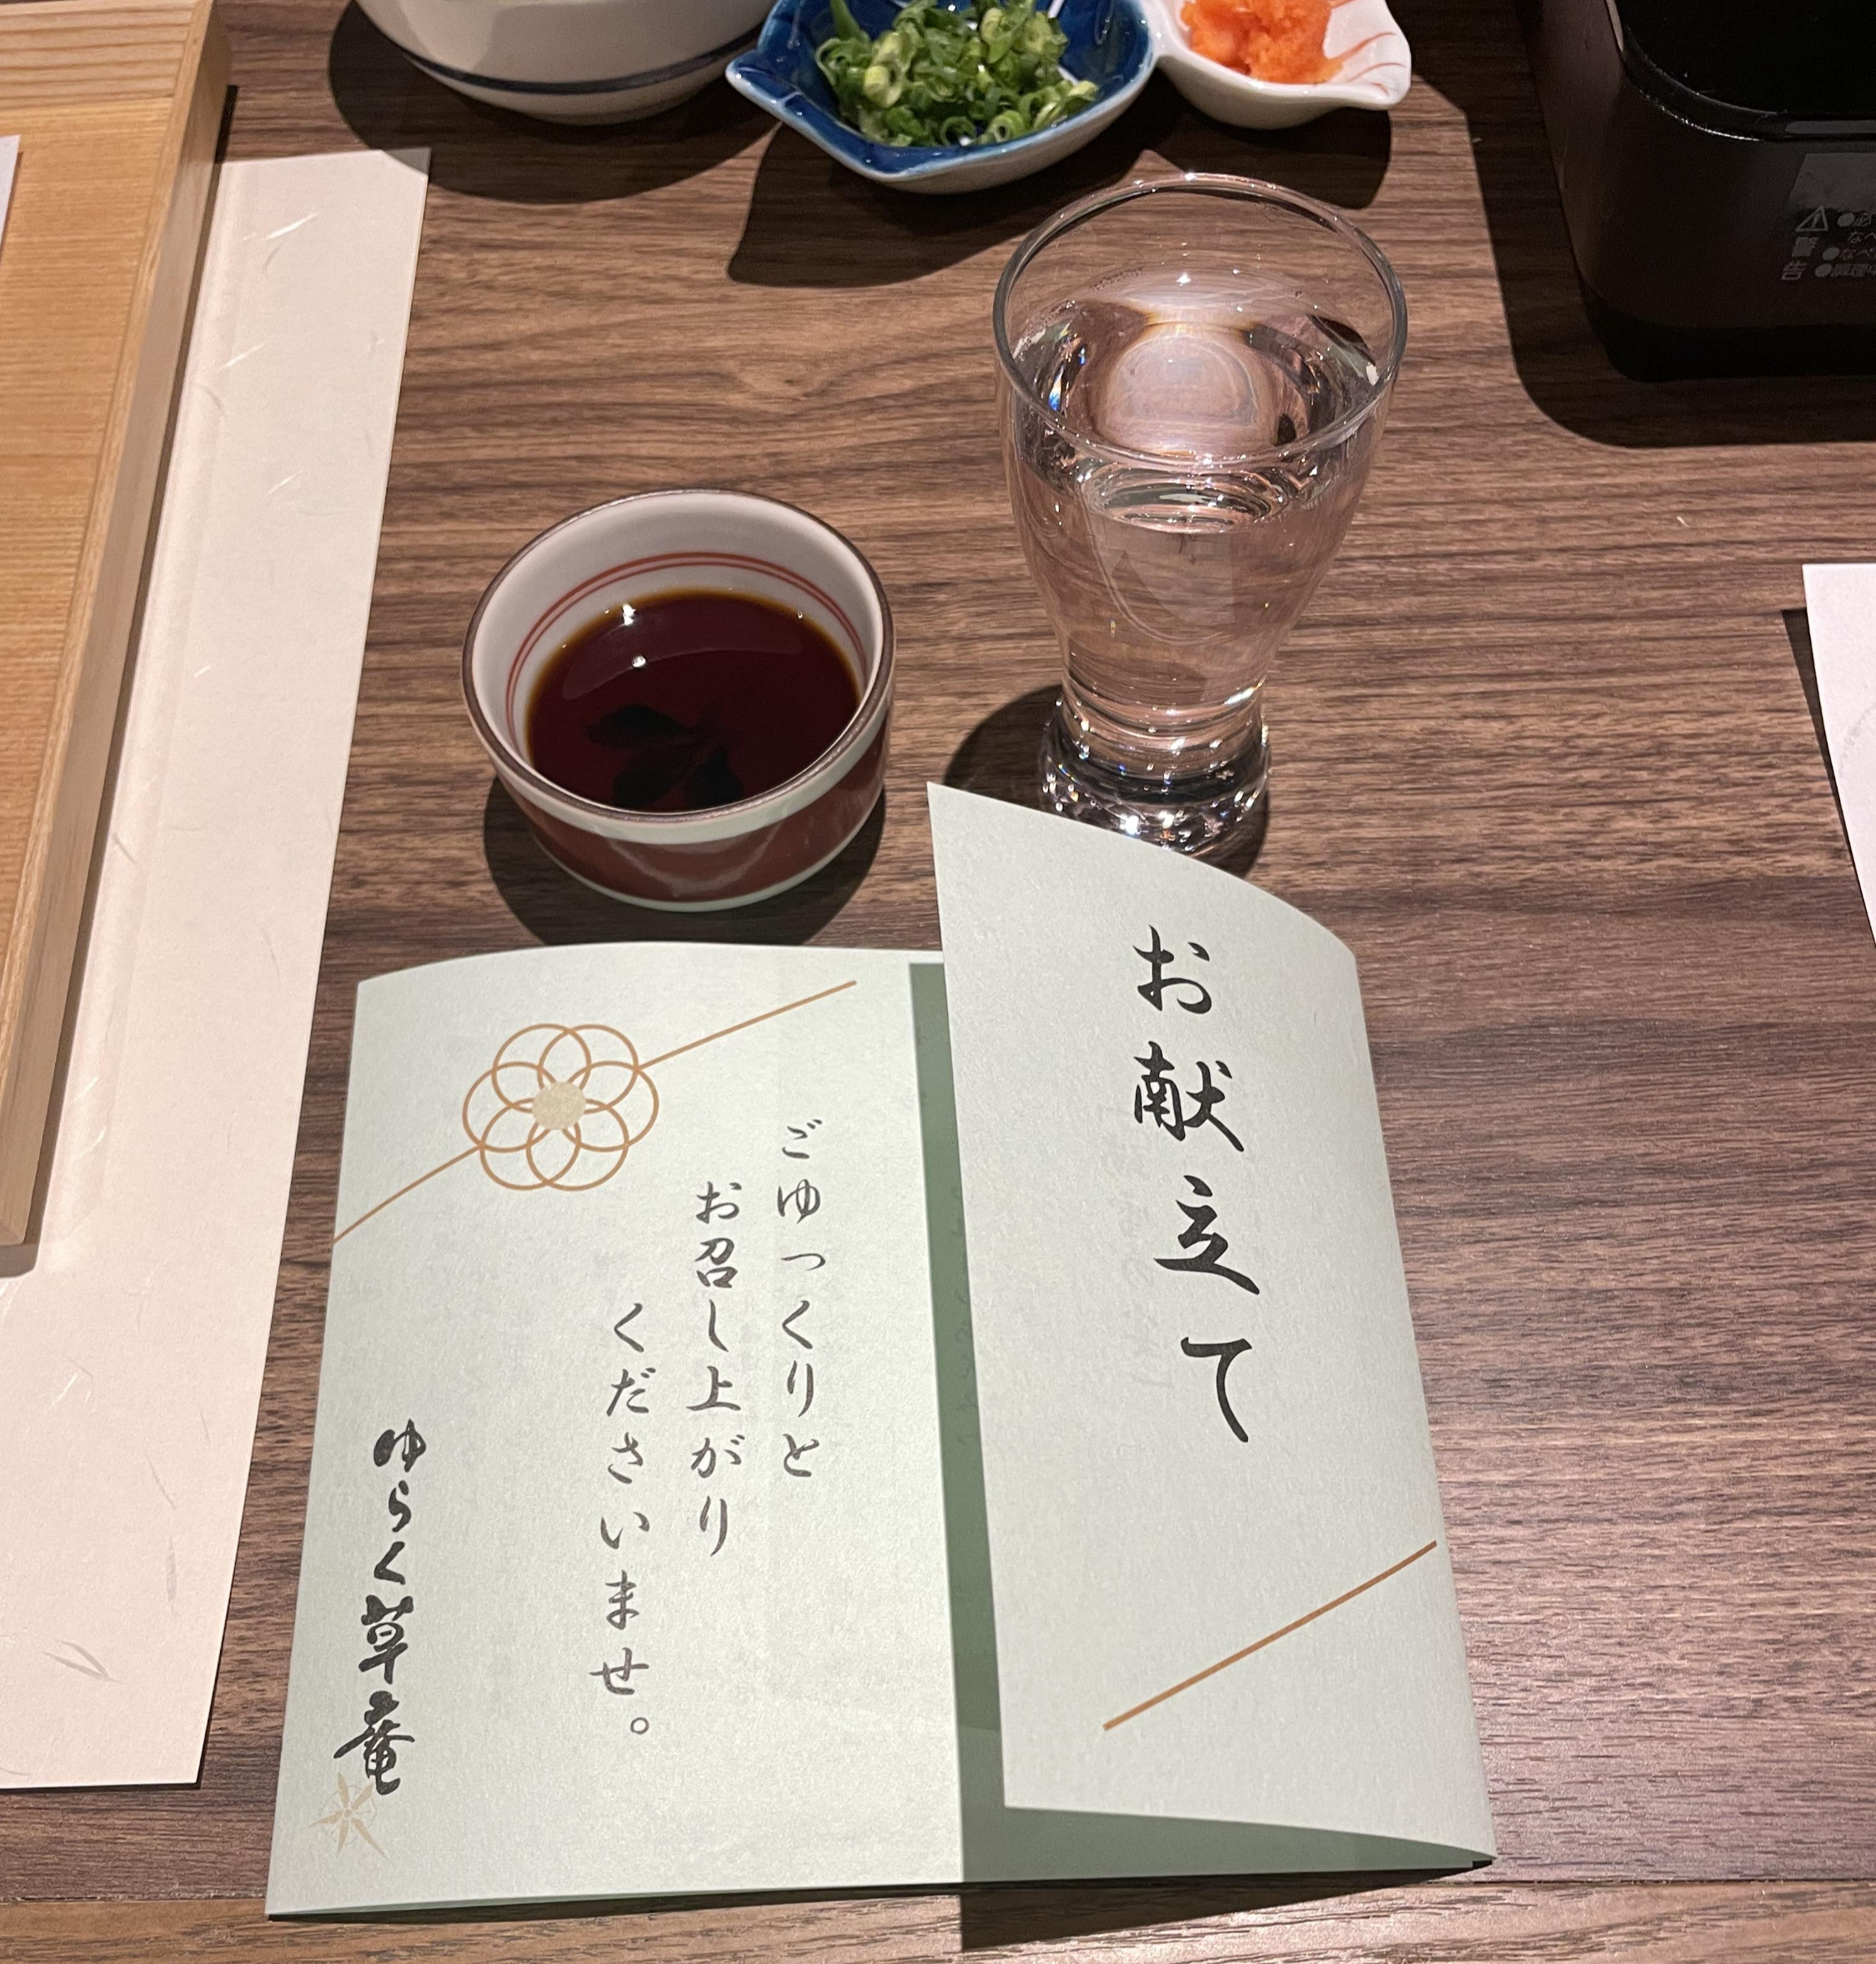 お献立て
ごゆっくりと
お召し上がり
くださいませ。
ゆらく草菴
警告